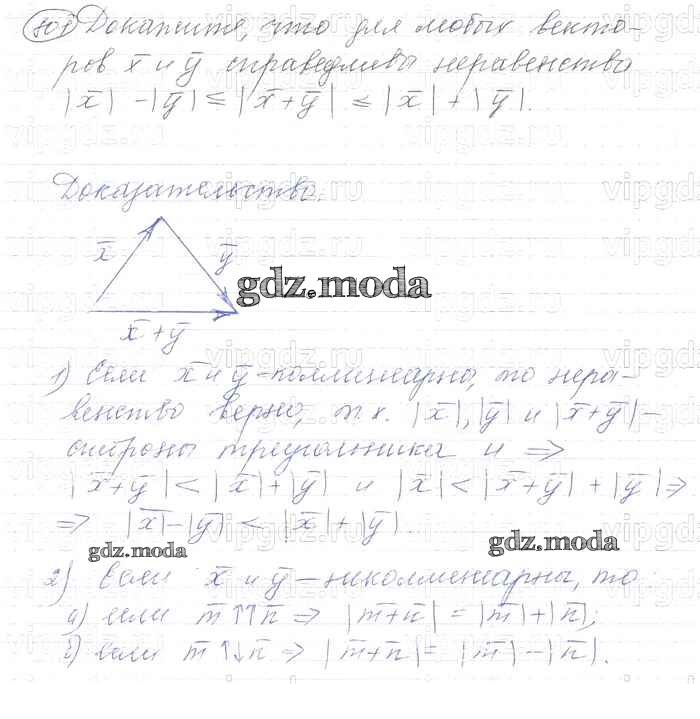 801 Докажите, что для любых векто-
ров x̅ и y̅ справедливы неравенства
|x̅| - |y̅| ≤ |x̅+y̅| ≤ |x̅| + |y̅|.
Доказательство.
x̅ y̅
gdz.moda
x̅+y̅
1) Если x̅ и y̅ - коллинеарно, то нера-
венство верно, т.к. |x̅|, |y̅| и |x̅+y̅| -
стороны треугольника и ⇒
|x̅+y̅| < |x̅|+|y̅| и |x̅| < |x̅+y̅| + |y̅| ⇒
⇒ |x̅|-|y̅| < |x̅|+|y̅|
gdz.moda gdz.moda
2) Если x̅ и y̅ - николлинеарны, то
а) если m̅ ↑↑ n̅ ⇒ |m̅+n̅| = |m̅|+|n̅|;
б) если m̅ ↑↓ n̅ ⇒ |m̅+n̅| = |m̅|-|n̅|.